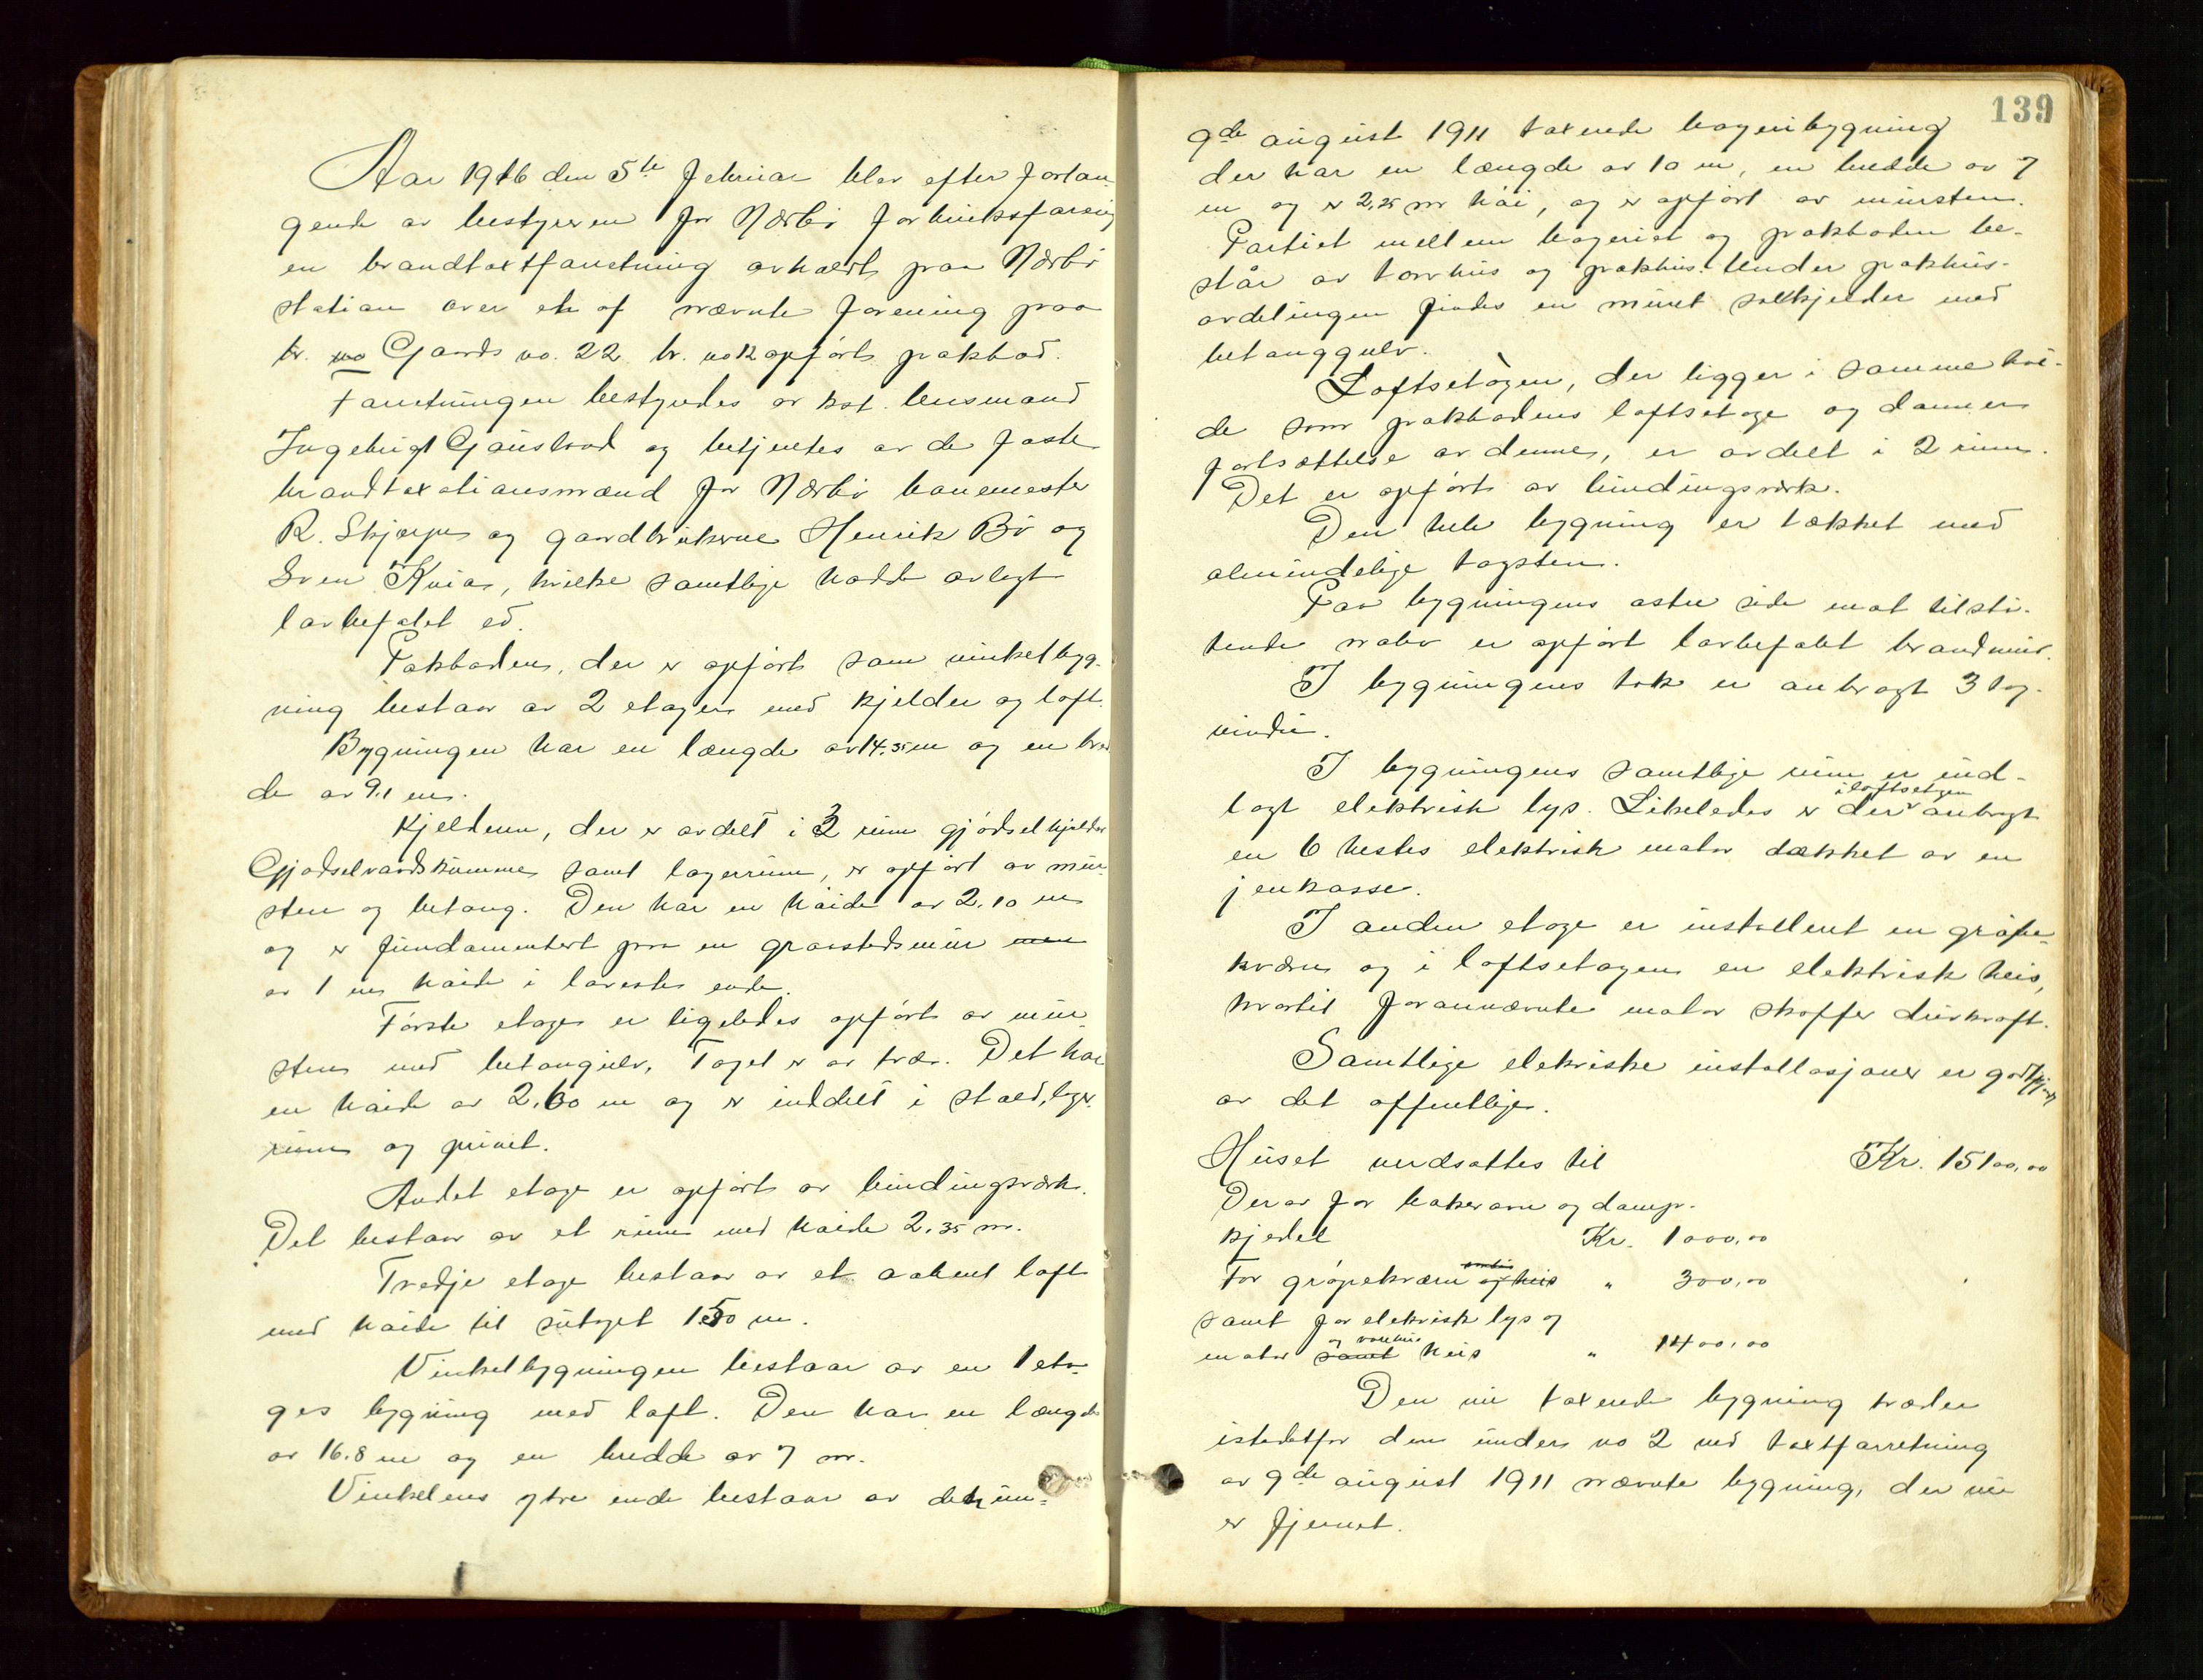 Aar 1916 den 5te februar blev efter forlan-
gende av bestyreren for Nærbø forbruksforening
en brandtaxtforretning avholdt paa Nærbø
station over et af nævnte forening paa
br. no Gaards no. 22 br. no 12 opført pakbod.
Forretningen bestyredes av kst. lensmand
Ingebrigt Gauslaad og betjentes av de faste
brandtaxationsmænd for Nærbø banemester
R. Skjærpe og gaardbrukerne Henrik Bø og
Sven Kvia, hvilke samtlige hadde avlagt
lovbefalet ed.
Pakboden, der er opført som vinkelbyg-
ning bestaar av 2 etager med kjelder og loft.
Bygningen har en længde av 14.35 m og en bred
de av 9.1 m.
Kjelderen, der er avdelt i 3 rum gjødselkjelder
Gjødselvandskumme samt lagerrum, er opført av mur-
sten og betong. Den har en høide av 2.10 m
og er fundamentert paa en graastensmur men
av 1 m høide i laveste ende.
Første etage er ligeledes opført av mur
sten med betongulv, Taget er av træ. Det har
en høide av 2.60 m og er inddelt i stald, lager
rum og privet.
Andet etage er opført av bindingsværk.
Det bestaar av et rum med høide 2.35 m.
Tredje etage bestaar av et aabent loft
med høide til sutaget 1.50 m.
Vinkelbygningen bestaar av en 1 eta-
ges bygning med loft. Den har en længde
av 16.8 m og en bredde av 7 m.
Vinkelens ytre ende bestaar av den un-
139
9de august 1911 taxerede bageribygning
der har en længde av 10 m, en bredde av 7
m og er 2,25 m høi, og er opført av mursten.
Partiet mellem bageriet og pakboden be-
står av torvhus og pakhus. Under pakhus-
avdelingen findes en muret saltkjelder med
betonggulv.
Loftsetagen, der ligger i samme høi-
de som pakbodens loftsetage og danner
fortsættelse av denne, er avdelt i 2 rum.
Det er opført av bindingsverk.
Den hele bygning er tækket med
almindelige tagsten.
Paa bygningens østre side mot tilstø-
tende nabo er opført lovbefalet brandmur.
I bygningens tak er anbragt 3 tag-
vinduer.
I bygningens samtlige rum er ind-
lagt elektrisk lys. Likeledes er der i loftsetagen anbragt
en 6 hestes elektrisk motor dækket av en
jernkasse.
I anden etage er installert en grøpe-
kværn og i loftsetagen en elektrisk heis,
hvortil forannævnte motor skaffer drivkraft.
Samtlige elekriske installasjoner er godkjendt
av det offentlige.
Huset verdsattes til Kr. 15100,00
Derav for bakerovn og damp-
kjedel Kr. 1000,00
For grøpekværn og heis " 300,00
samt for elektrisk lys og
motor samt heis " 1400,00
Den nu taxerede bygning træder
istedetfor den under no 2 ved taxtforretning
av 9de august 1911 nævnte bygning, der nu
er fjernet.